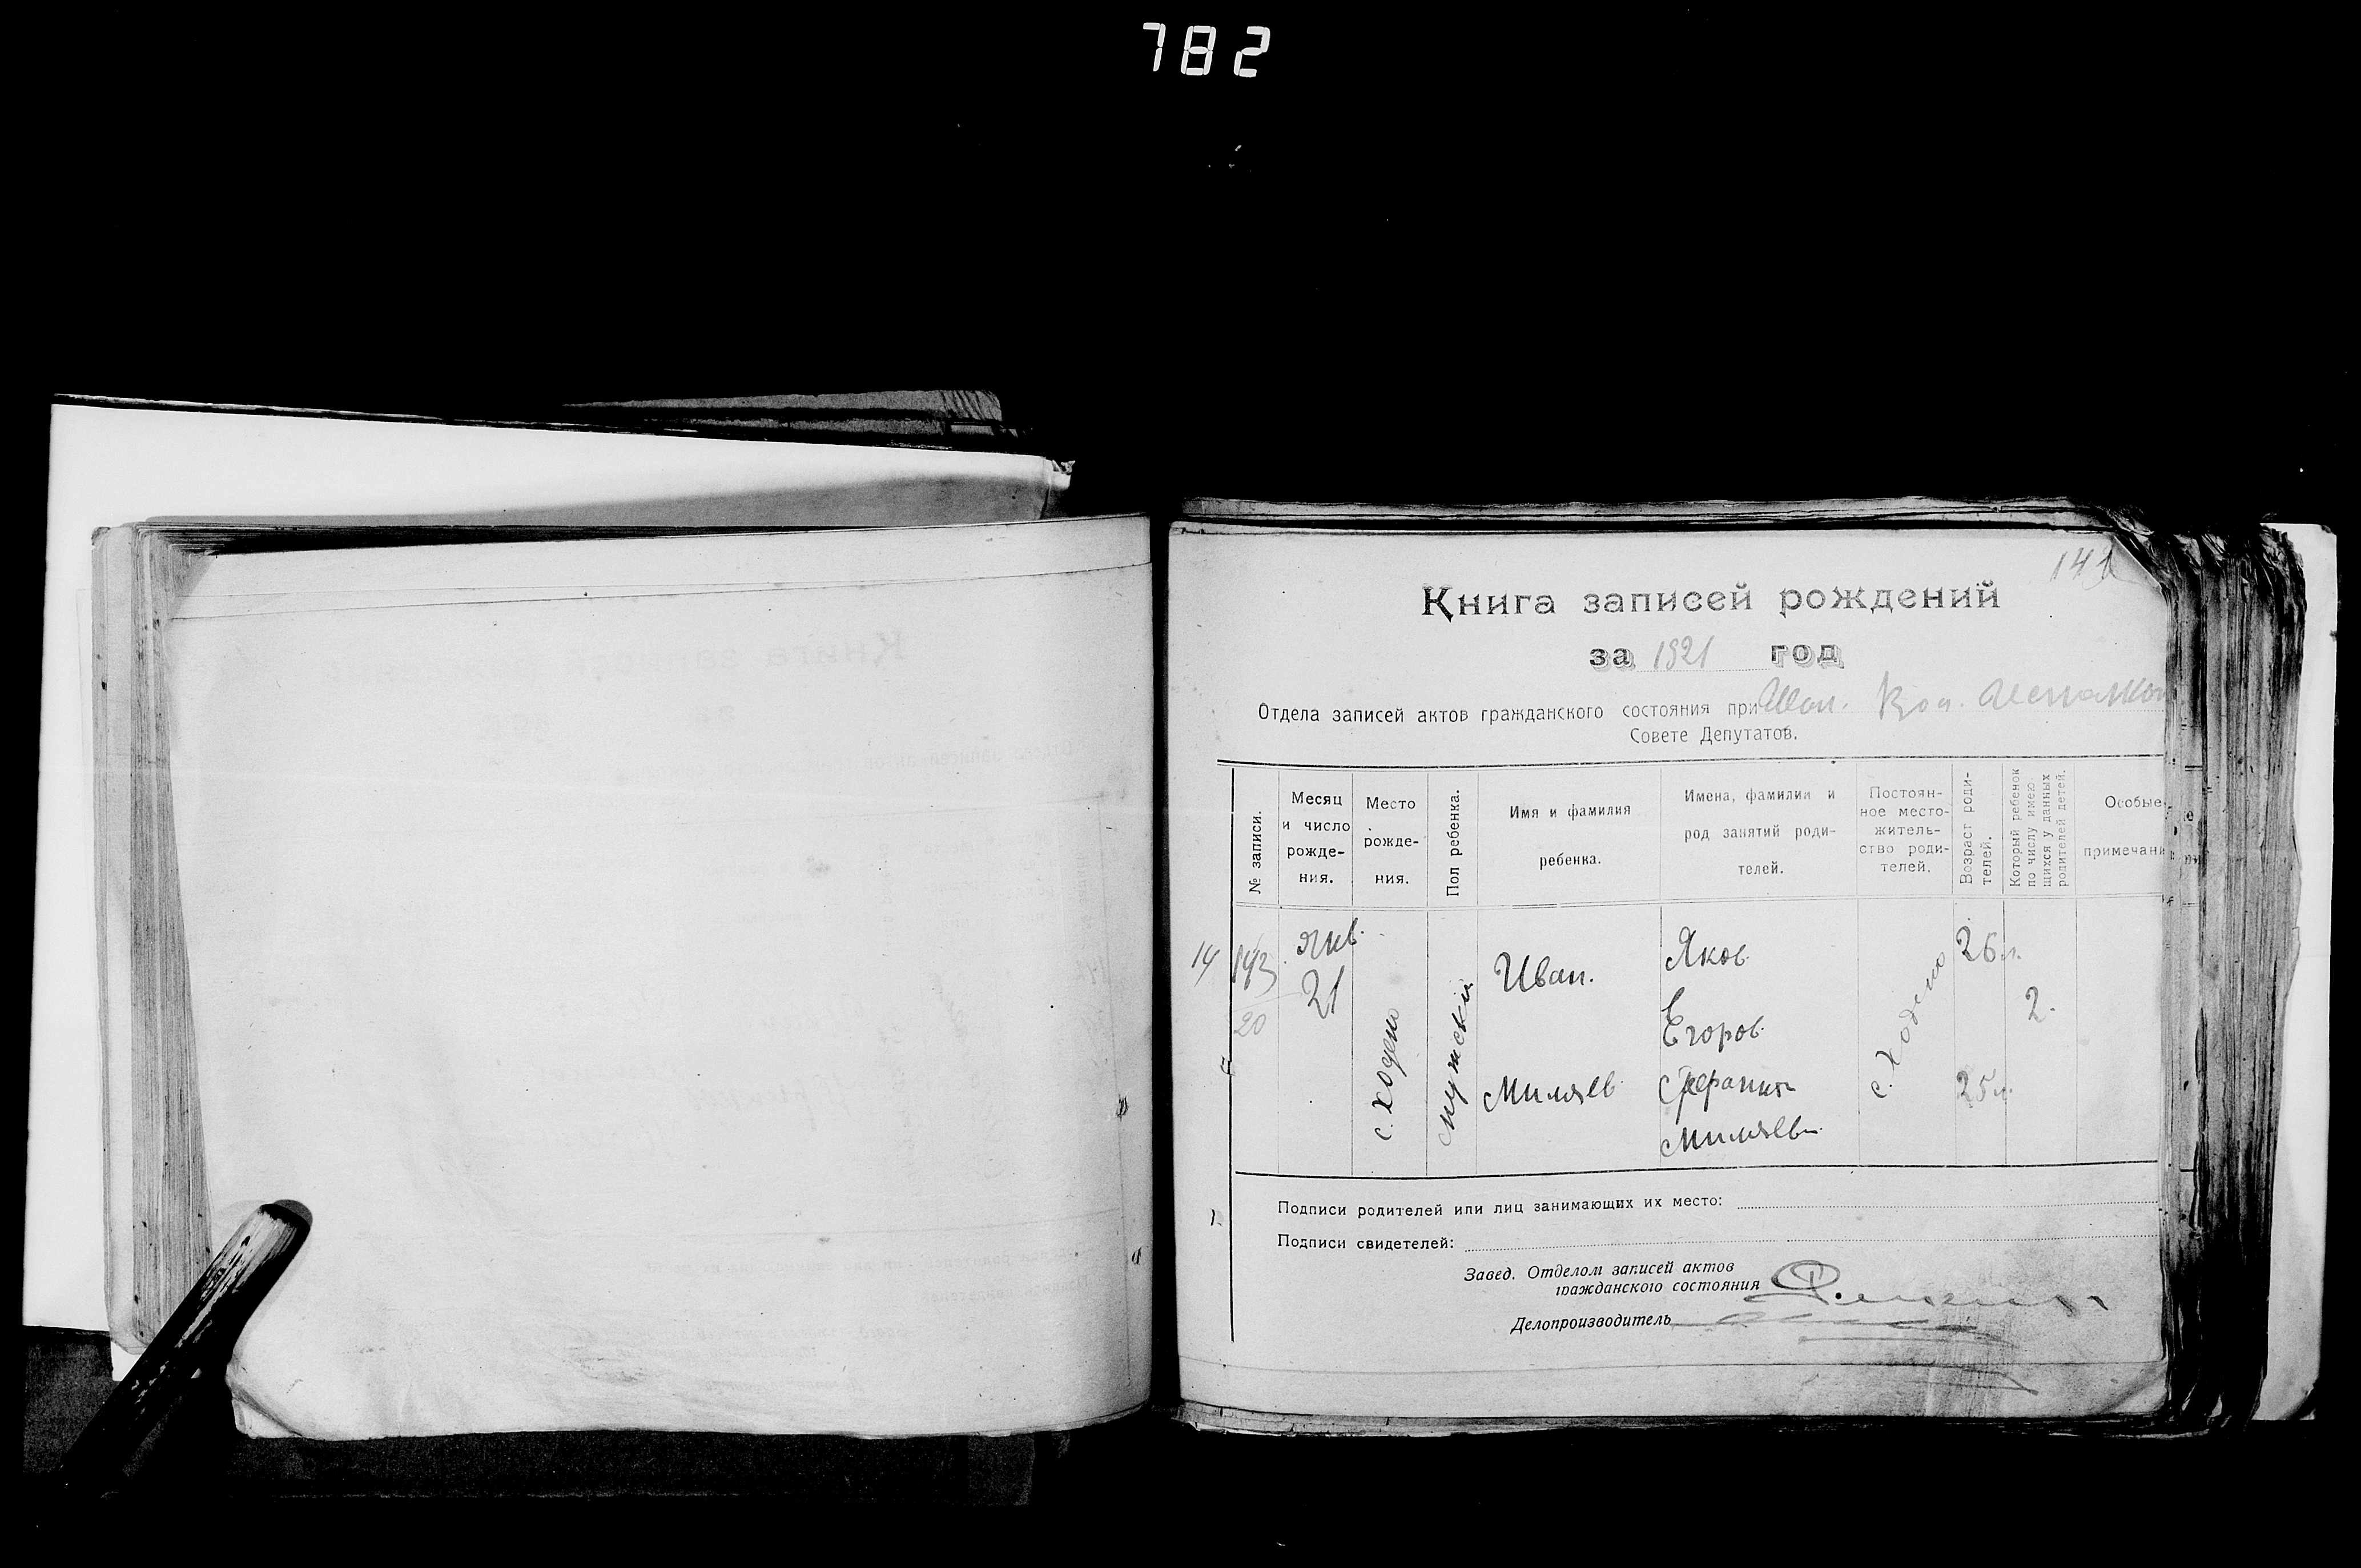 782
143
Книга записей рождений
за 1921 год
Отдела записей актов гражданского состояния при
Совете Депутатов.
№ записи.
Месяц
и число
рожде-
ния.
Место
рожде-
ния.
Пол ребенка.
Имя и фамилия
ребенка.
Имена, фамилии и
род занятий роди-
телей.
Постоян-
ное место-
житель-
ство роди-
телей.
Возраст роди-
телей.
Который ребенок
по числу имею-
щихся у данных
родителей детей.
Особые
примечани
14
143
20
Янв.
21
с. Ходено
мужский
Иван.
Миляев
Яков
Егоров
Миляевы
с. Ходено
26 л.
25 л.
2.
Подписи родителей или лиц занимающих их место:
Подписи свидетелей:
Завед. Отделом записей актов
гражданского состояния
Делопроизводитель